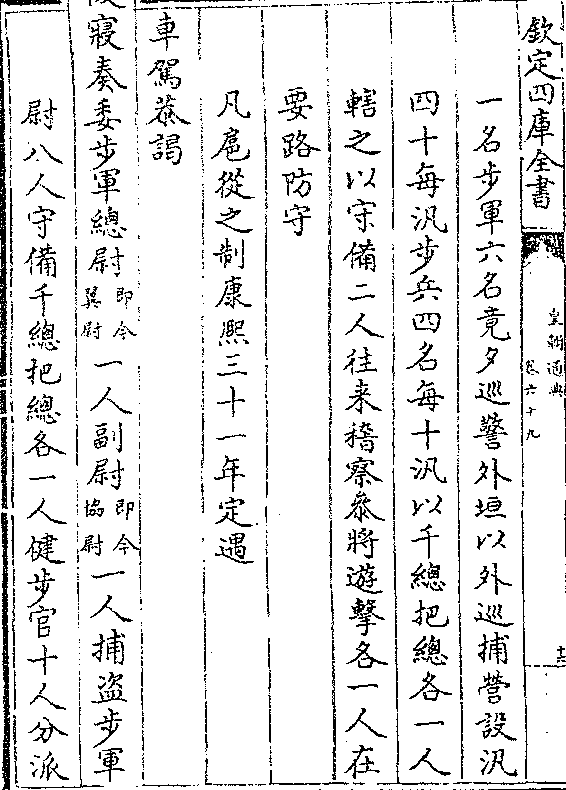 欽定四庫全書
皇朝通典
卷六十九
十三
一名步軍六名竟夕巡警外垣以外巡捕營設汛
四十每汛步兵四名每十汛以千總把總各一人
轄之以守備二人往来稽察叅將遊擊各一人在
要路防守
凡扈從之制康熙三十一年定遇
車駕恭謁
寢奏委步軍總尉即今翼尉一人副尉即今協尉一人捕盜步軍
尉八人守備千總把總各一人健步官十人分派